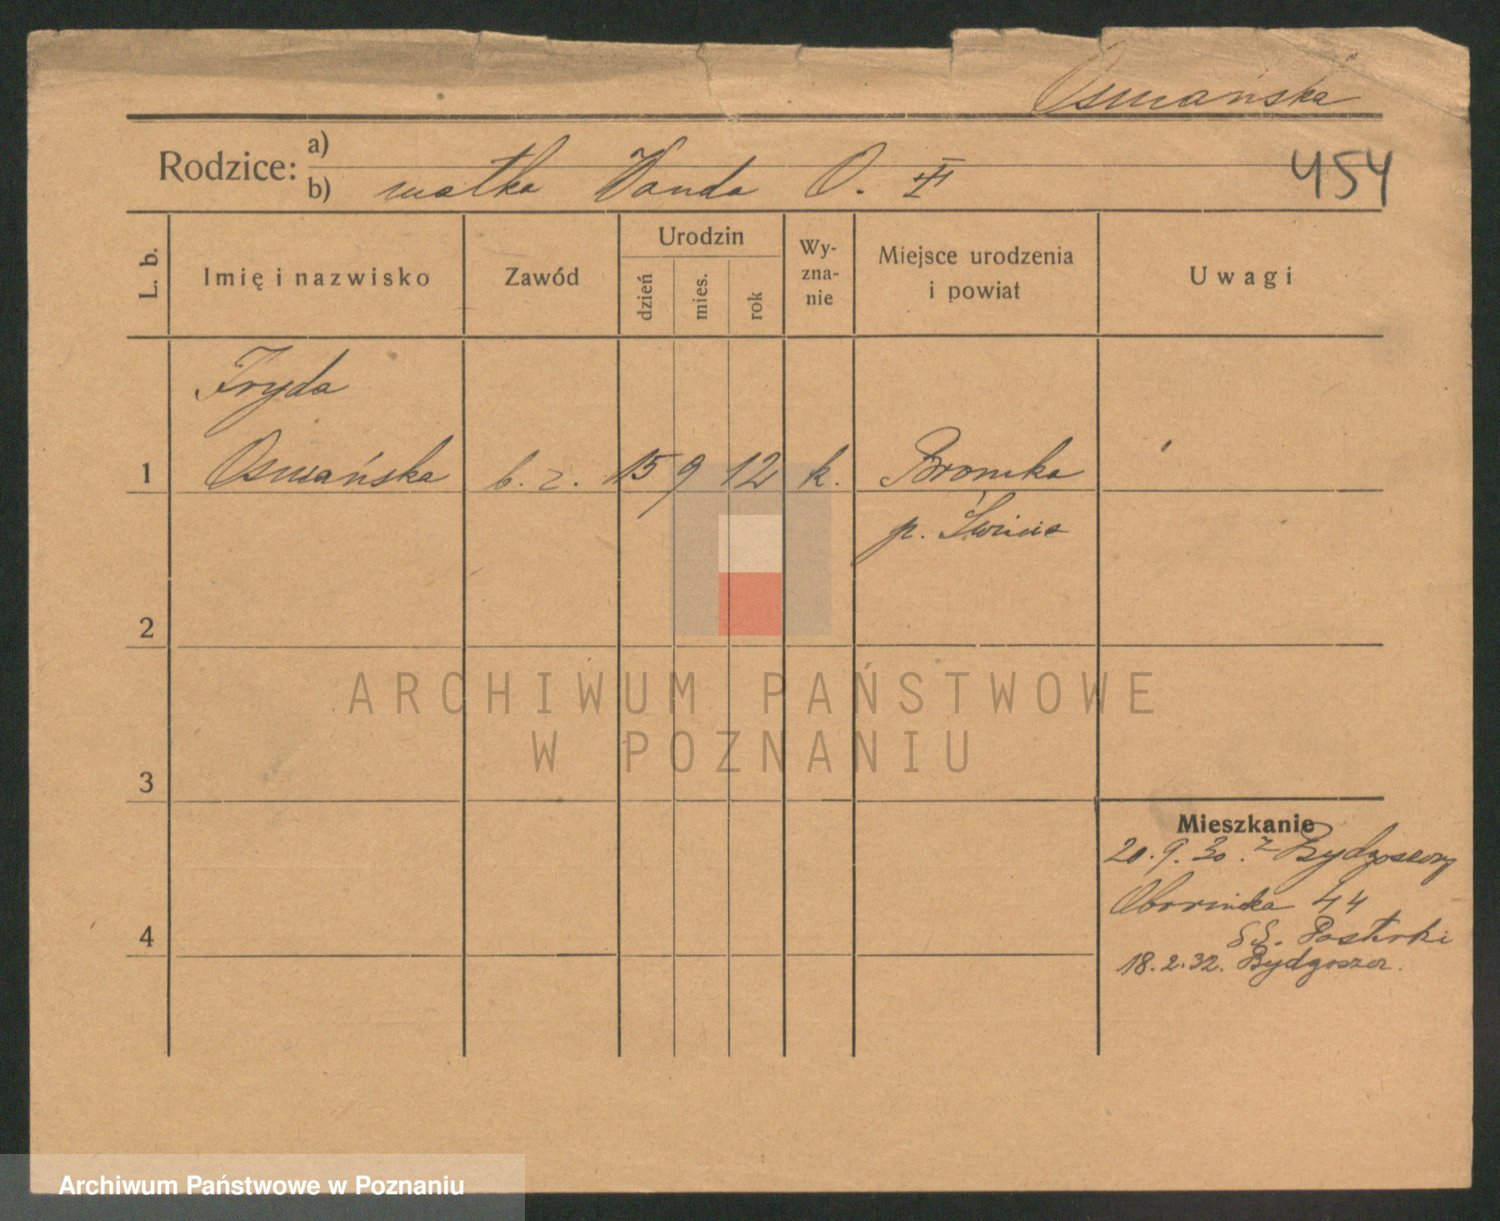 Osmańska
Rodzice: a)
b) matka Wanda O.
454
L. b.
Imię i nazwisko
Zawód
Urodzin
dzień
mies.
rok
Wy-
zna-
nie
Miejsce urodzenia
i powiat
Uwagi
Fryda
1 Osmańska b. z. 15 9 12 k.
p. Świecie
2
3
4
Mieszkanie
20.9.30. z Bydgoszczy
44
18.2.32. Bydgoszcz.
ARCHIWUM PAŃSTWOWE
W POZNANIU
Archiwum Państwowe w Poznaniu